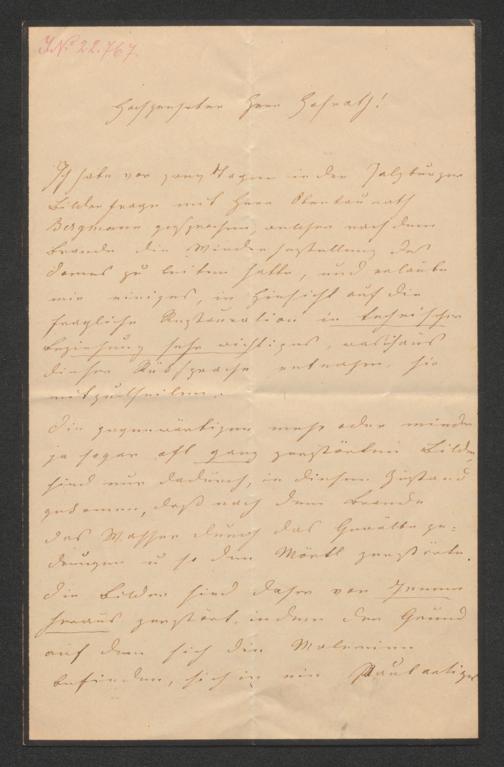 J.N. 22.767.
Hochgeehrter Herr Hofrath!
Ich habe vor zwey Tagen in der Salzburger
Bilderfrage mit Herr Oberbaurath
Bergmann gesprochen, welcher nach dem
Brande die Wiederherstellung des
Domes zu leiten hatte, und erlaube
mir einiges, in Hinsicht auf die
fragliche Restauration in technischer
Beziehung sehr wichtiges, was ich aus
dieser Rücksprache entnahm, hie
mitzutheilen.
Die gegenwärtigen mehr oder minder
ja sogar oft ganz zerstörten Bilder
sind nur dadurch, in diesen Zustand
gekomen, daß nach dem Brande
das Wasser durch das Gewölbe ge=
drungen u so den Mörtl zerstörte.
Die Bilder sind daher von Innen
heraus zerstört, indem der Grund
auf dem sich die Malereien
befinden, sich in ein staubartiges